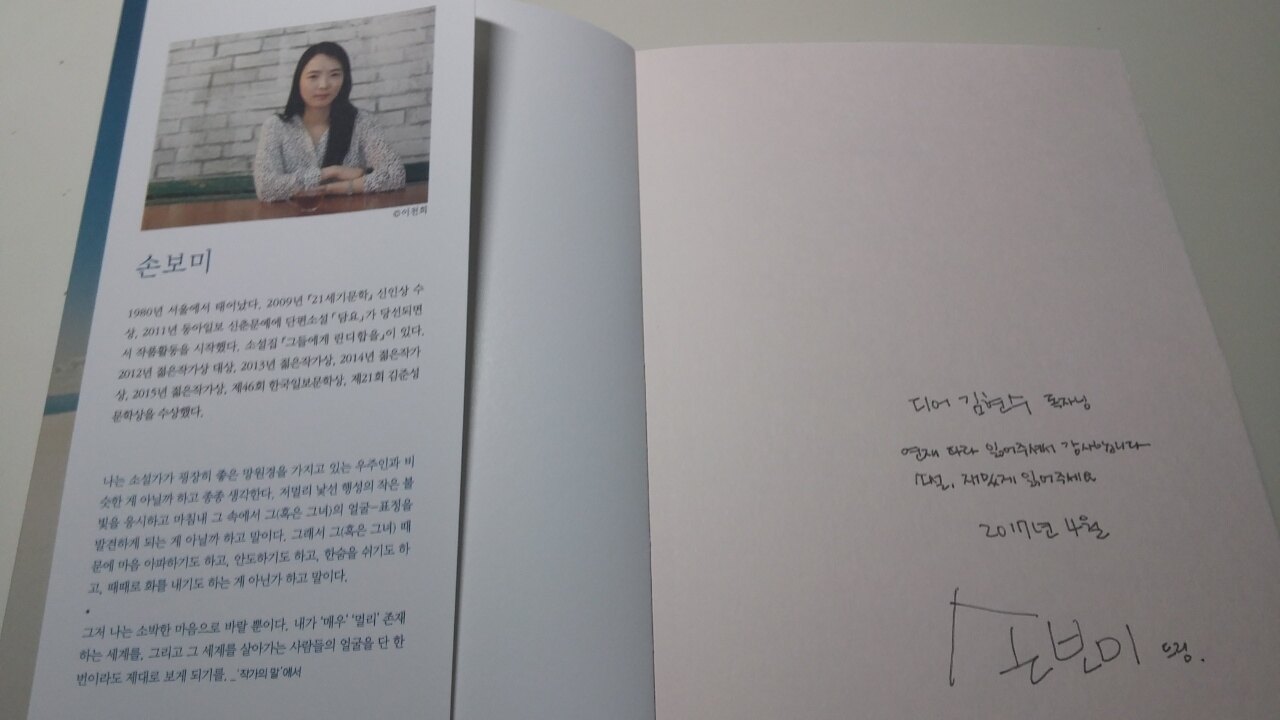 ©이천희
손보미
1980년 서울에서 태어났다. 2009년 『21세기문학』 신인상 수
상, 2011년 동아일보 신춘문예에 단편소설 「담요」가 당선되면
서 작품활동을 시작했다. 소설집 『그들에게 린디합을』이 있다.
2012년 젊은작가상 대상, 2013년 젊은작가상, 2014년 젊은작가
상, 2015년 젊은작가상, 제46회 한국일보문학상, 제21회 김준성
문학상을 수상했다.
나는 소설가가 굉장히 좋은 망원경을 가지고 있는 우주인과 비
슷한 게 아닐까 하고 종종 생각한다. 저멀리 낯선 행성의 작은 불
빛을 응시하고 마침내 그 속에서 그(혹은 그녀)의 얼굴-표정을
발견하게 되는 게 아닐까 하고 말이다. 그래서 그(혹은 그녀) 때
문에 마음 아파하기도 하고, 안도하기도 하고, 한숨을 쉬기도 하
고, 때때로 화를 내기도 하는 게 아닌가 하고 말이다.
•
그저 나는 소박한 마음으로 바랄 뿐이다. 내가 '매우' '멀리' 존재
하는 세계를, 그리고 그 세계를 살아가는 사람들의 얼굴을 단 한
번이라도 제대로 보게 되기를. _ '작가의 말'에서
디어 김현수 독자님
연재 따라 읽어주셔서 감사합니다
재밌게 읽어주세요
2017년 4월
손보미 드림.